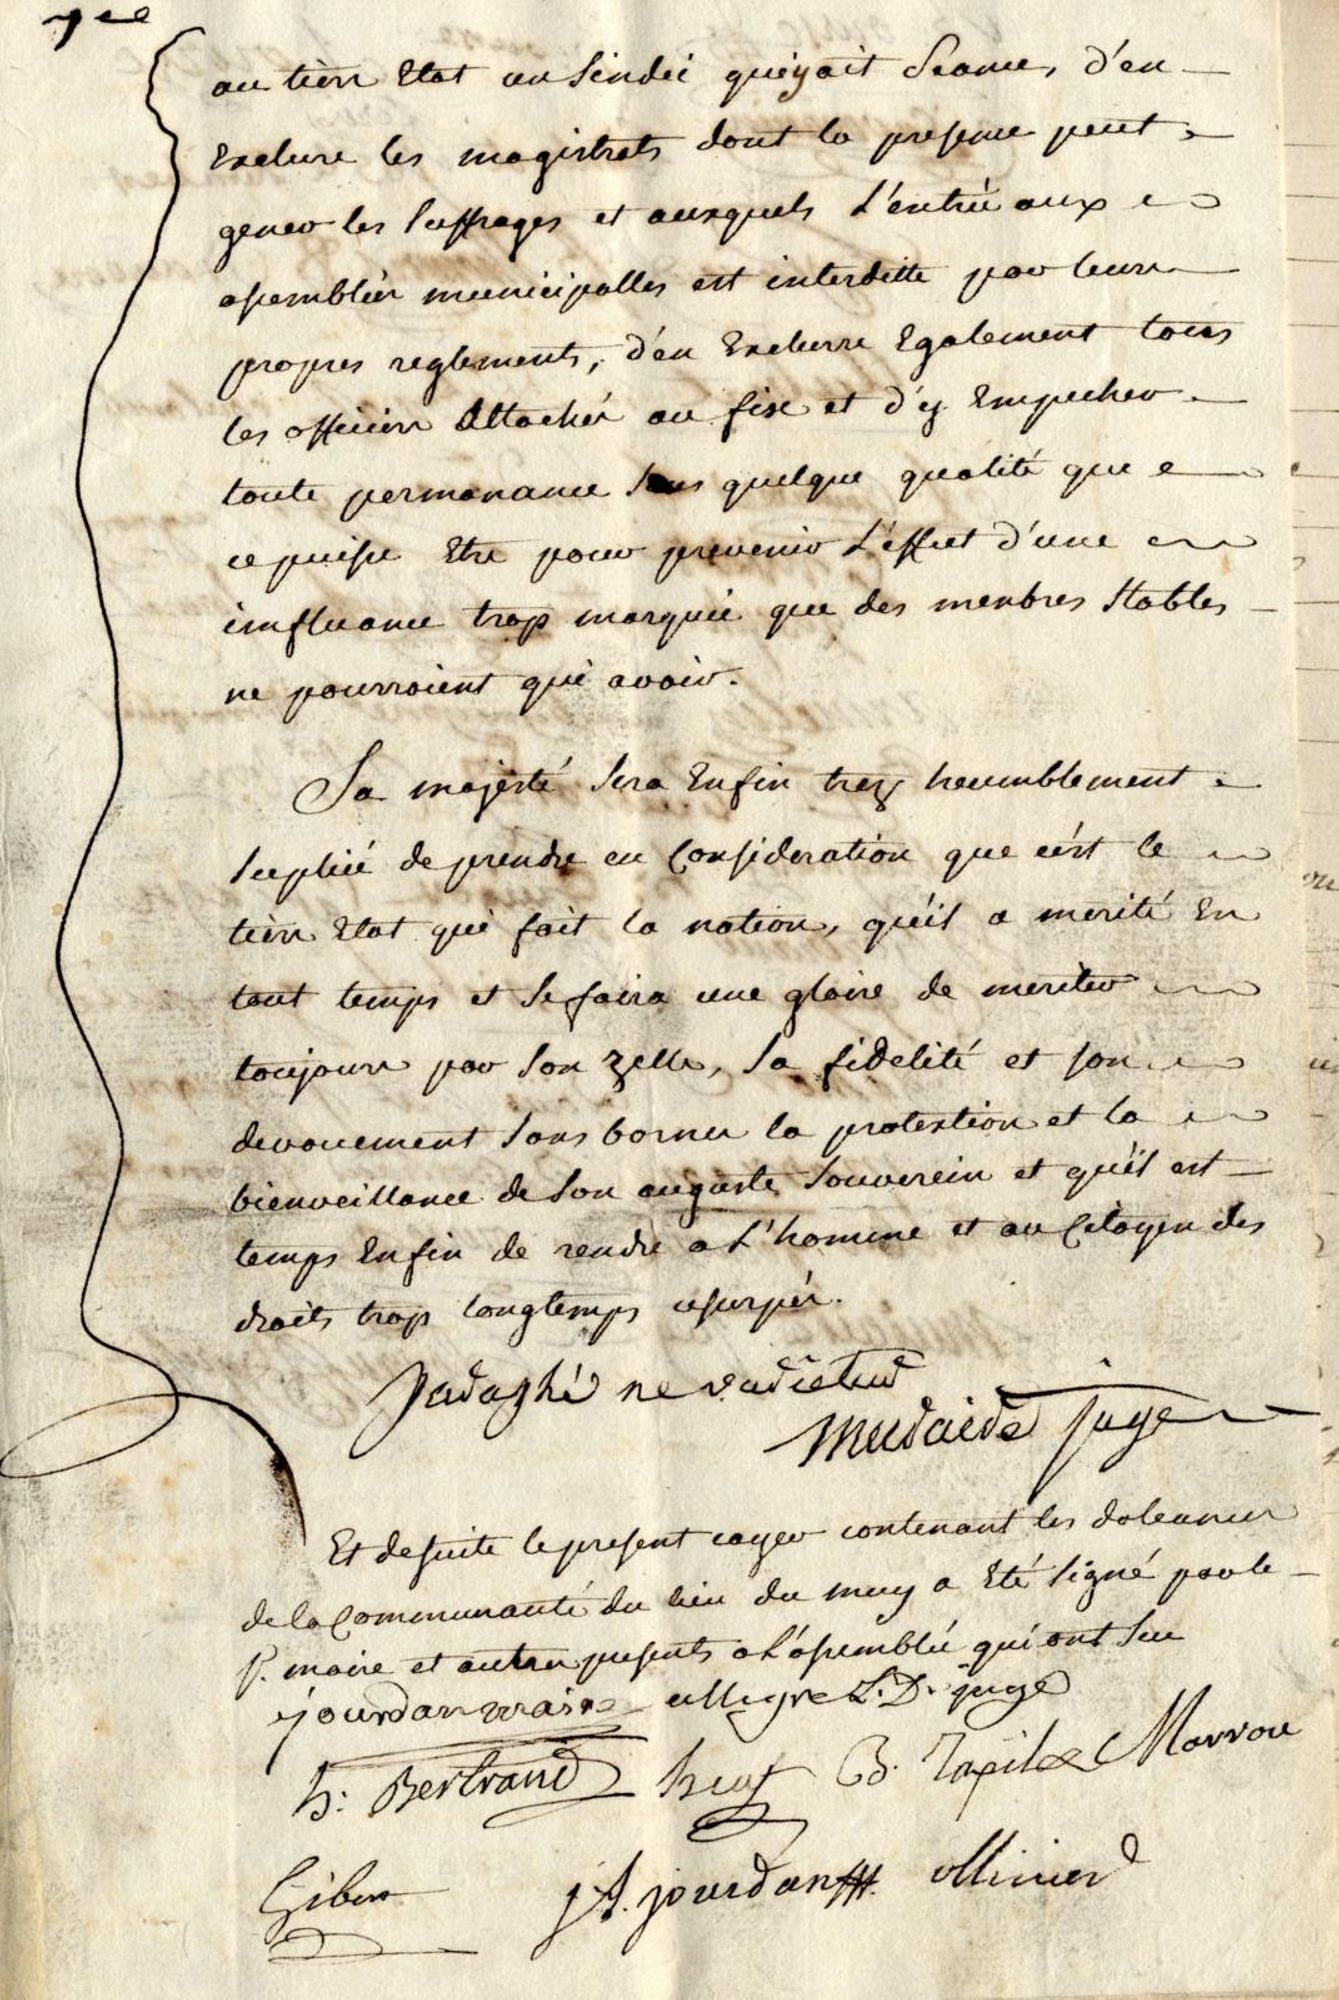 au tiers Etat un sindic qui y ait séance, d'en
Exclure les magistrats dont la presence peut
gener les suffrages et auxquels L'entrée aux
assemblées municipalles est interditte par leurs
propres reglements, d'en Exclurre Egalement tous
les officiers Attachés au fisc et d'y Empecher
toute permanance sous quelque qualité que
ce puisse Etre pour prevenir L'effet d'une
imfluance trop marquée que des menbres stables
ne pourroient qu'i avoir.
Sa majesté sera Enfin trez heumblement
supliée de prendre en Consideration que c'est le
tiers Etat qui fait la nation, qu'il a merité En
tout temps et se faira une gloire de meriter
toujours par son zelle, sa fidelité et son
devouement sans bornes la protextion et la
bienveillance de son auguste souverein et qu'il est
temps Enfin de rendre a L'homme et au Citoyen des
droits trop longtemps usurpés.
Paraphé ne varietur
juge
Et de suite le present cayer contenant les doleances
de la Communauté du lieu du muy a Eté signé par le
S. maire et autres presents a L'assemblée qui ont seu
jourdan maire allegre L. D. juge
h: Bertrand B. Marrou
Giber j A. jourdan ollivier